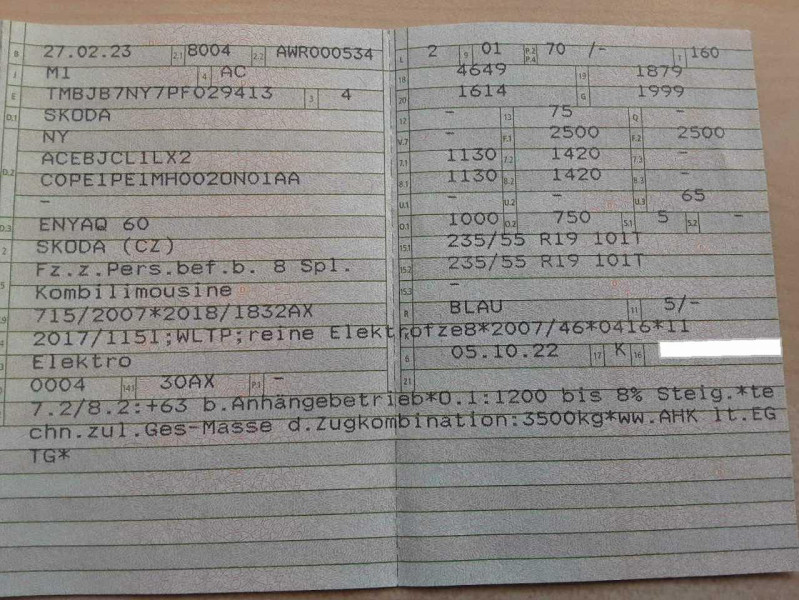 B 27.02.23 2.1 8004 2.2 AWR000534
J M1 4 AC
E TMBJB7NY7PF029413 3 4
D.1 SKODA
NY
D.2 ACEBJCL1LX2
COPE1PE1MH0020N01AA
-
D.3 ENYAQ 60
2 SKODA (CZ)
5 Fz.z.Pers.bef.b. 8 Spl.
Kombilimousine
715/2007*2018/1832AX
2017/1151;WLTP;reine Elektrofze8*2007/46*0416*11
Elektro
0004 14.1 30AX P.1 -
L 2 9 01 P.2 P.4 70 /- T 160
18 4649 19 1879
20 1614 G 1999
12 - 13 75 Q -
V.7 - F.1 2500 F.2 2500
7.1 1130 7.2 1420 7.3 -
8.1 1130 8.2 1420 8.3 -
U.1 - U.2 - U.3 65
O.1 1000 O.2 750 S.1 5 S.2 -
15.1 235/55 R19 101T
15.2 235/55 R19 101T
15.3 -
R BLAU 11 5/-
6 05.10.22 17 K 16
21
7.2/8.2:+63 b.Anhängebetrieb*O.1:1200 bis 8% Steig.*te
chn.zul.Ges-Masse d.Zugkombination:3500kg*ww.AHK lt.EG
TG*